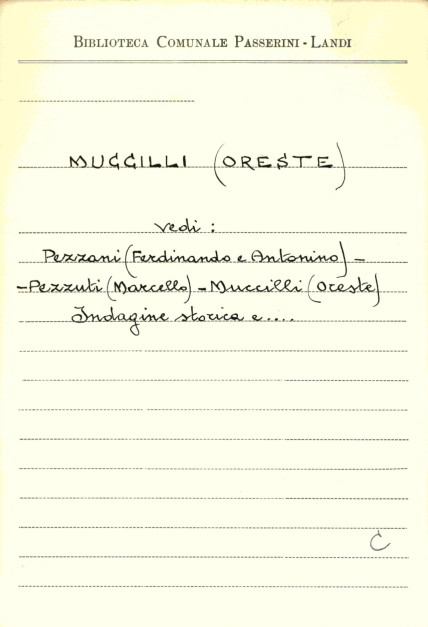 BIBLIOTECA COMUNALE PASSERINI - LANDI
MUCCILLI (ORESTE)
vedi :
Pezzani (Ferdinando e Antonino) -
- Pezzuti (Marcello) - Muccilli (Oreste)
Indagine storica e....
C